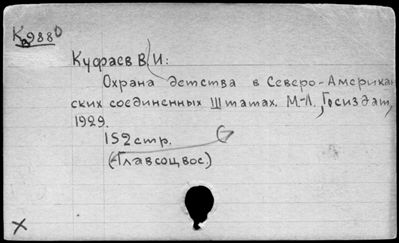 К 9880
В
Куфаев В. И:
Охрана детства в Северо-Американ
ских соединенных Штатах. М-Л., Госиздат,
1929.
152 стр.
(Главсоцвос)